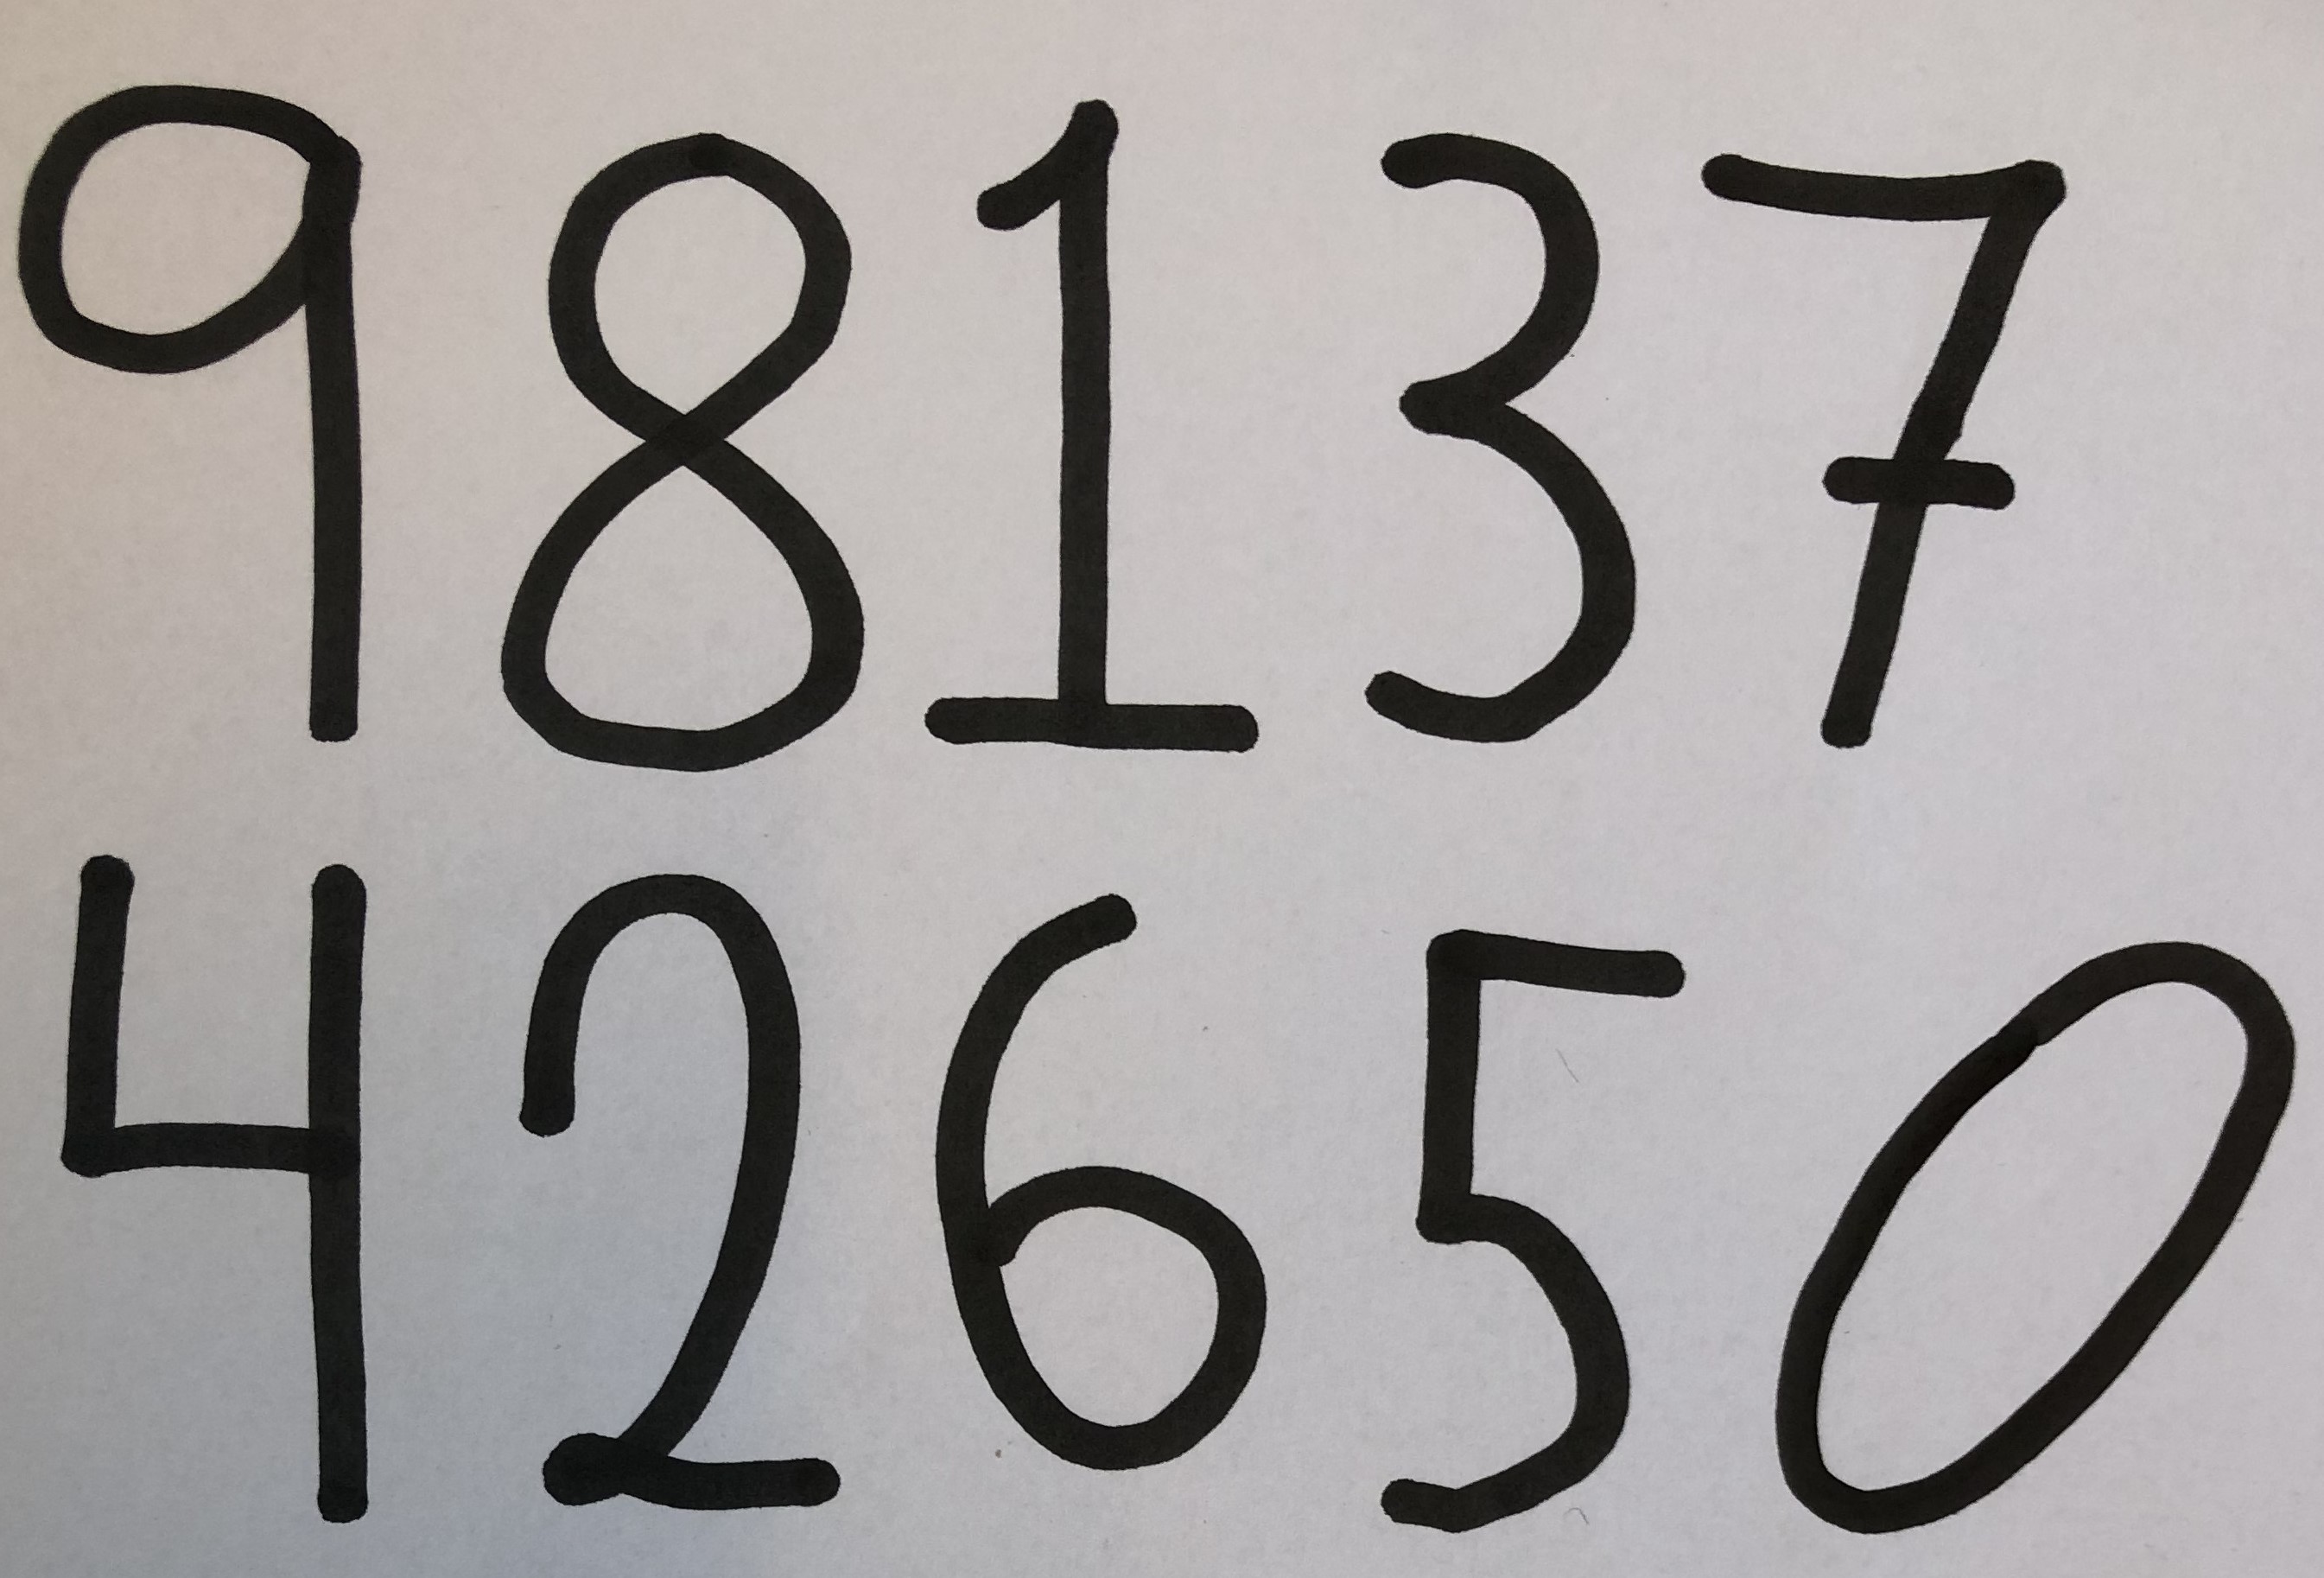 98137
42650